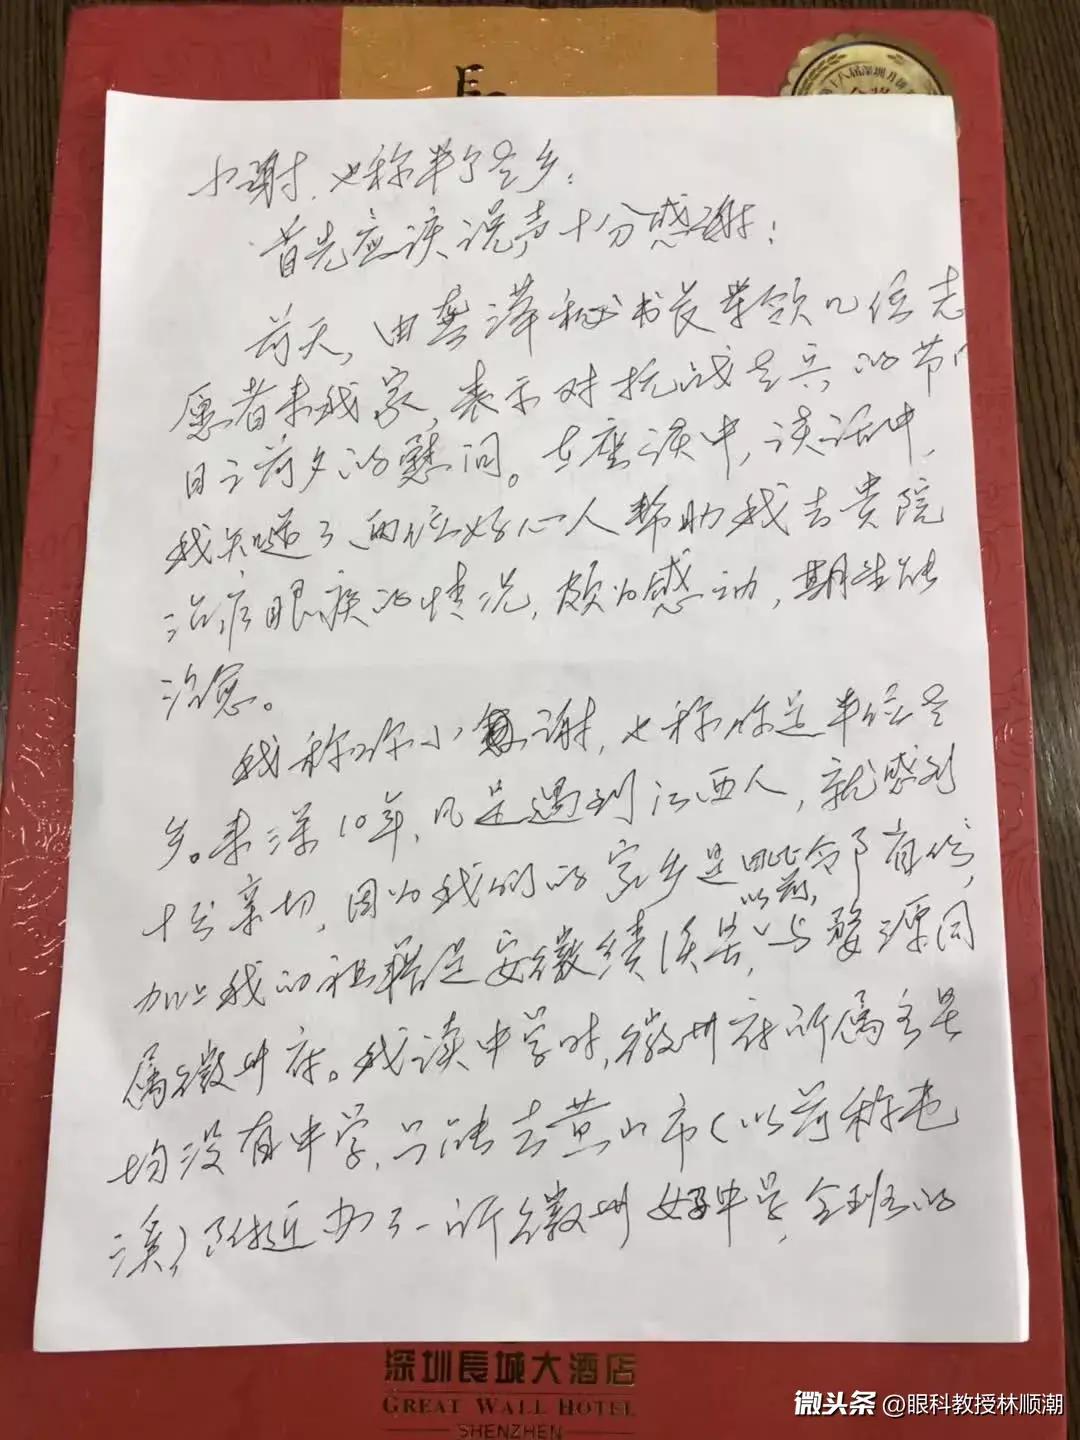 小谢,也称半个老乡:
首先应该说声十分感谢!
前天,由龚泽秘书长带领几位志
愿者来我家,表示对抗战老兵的节
日之前夕的慰问。在座谈中,谈话中,
我知道了两位好心人帮助我去贵院
治疗眼疾的情况,颇为感动,期望能
治愈。
我称你小谢,也称你是半位老
乡。来深10年,凡是遇到江西人,就感到
十分亲切,因为我们的家乡是毗邻省份,
以前,
加上我的祖籍是安徽绩溪县,与婺源同
属徽州府。我读中学时,徽州府所属各县
均没有中学,只能去黄山市(以前称屯
溪)附近办了一所徽州女子中学,全班的
深圳長城大酒店
GREAT WALL HOTEL
SHENZHEN
微头条 @眼科教授林顺潮